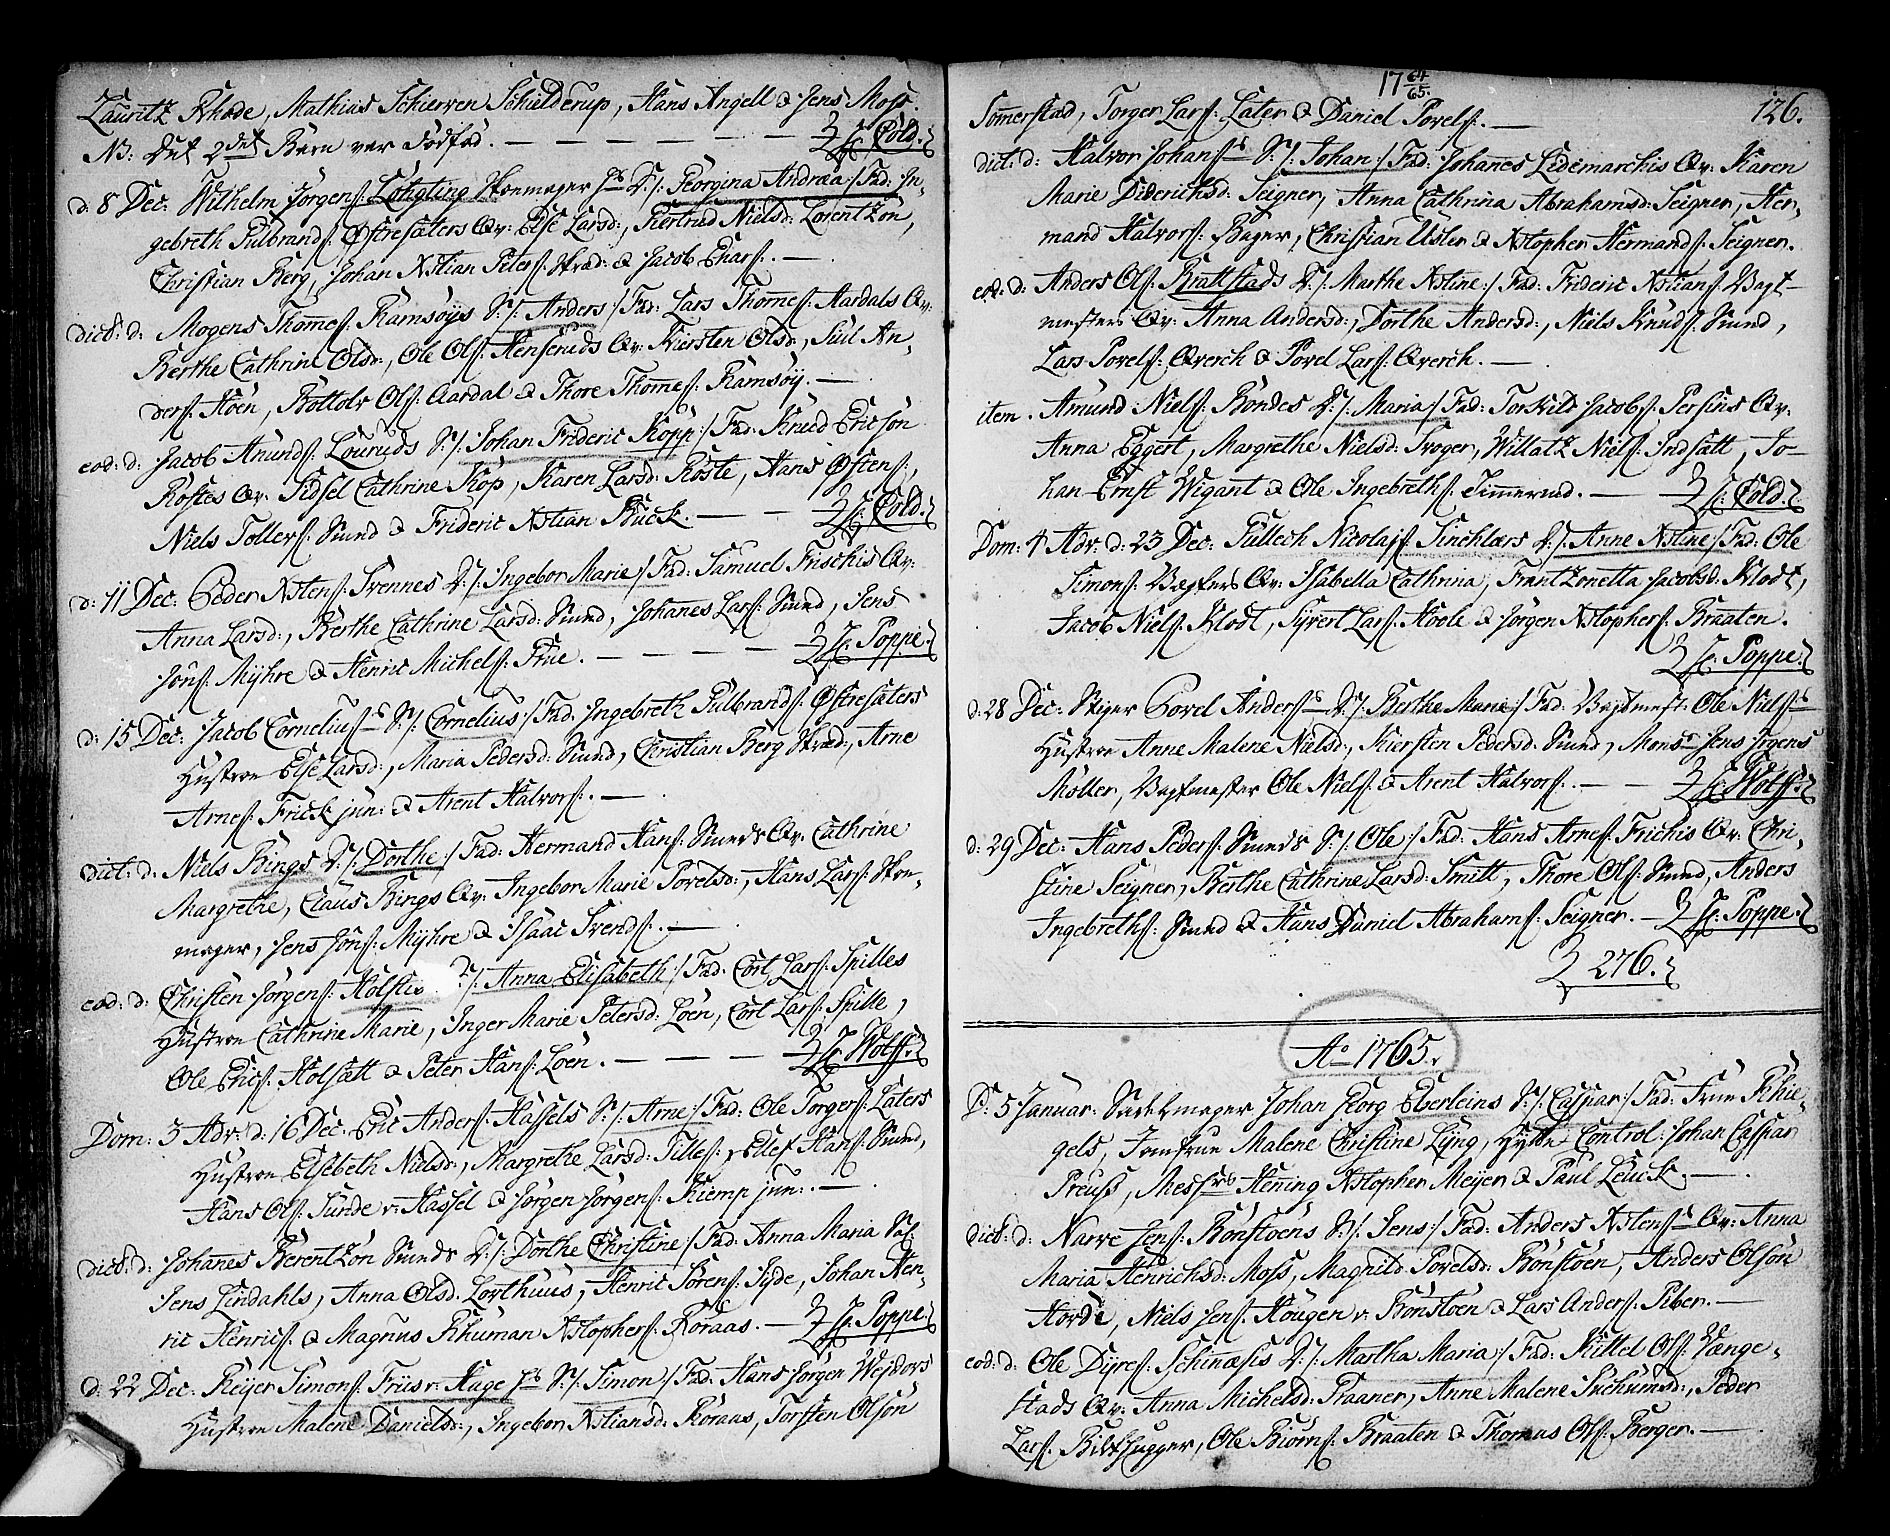 Lauritz Rhode, Mathias Schierven Schielderup, Hans Angell & Jens Moss.
NB: Det 2det Barn var Dödföd. — — — — — H: Cold.
d: 8 Dec: Wilhelm Jörgens: Skomager D: /: Georgina Andræa :/ Fad: In-
gebreth Gulbrands: Östresæters Qv: Else Larsd:, Giertrud Nielsd: Lorentzon,
Christian Berg, Johan Xstian Peters: Skræd: & Jacob Ehars:. —
dict: d: Mogens Thomes: Ramsöys S: /: Anders :/ Fad: Lars Thomes: Aardals Qv:
Berthe Cathrine Olsd:, Ole Ols: Henseruds Qv: Kiersten Olsd:, Juil An-
ders: Hoen, Bottolv Ols: Aardal & Thore Thomes: Ramsöy. —
eod: d: Jacob Anunds: Louruds S: /: Johan Frideric Kopp :/ Fad: Knud Ericson
Röstes Qv: Sidsel Cathrine Kop, Karen Larsd: Röste, Hans Östens:,
Niels Tollers: Smed & Frideric Xstian Buck. — — H: Cold.
d: 11 Dec: Peder Xstens: Svennes D: /: Ingebor Marie :/ Fad: Samuel Frischis Qv:
Anna Larsd:, Berthe Cathrine Larsd: Smed, Johanes Lars: Smed, Jens
Jöns: Myhre & Henric Michels: Frue. — — — — H: Poppe.
d: 15 Dec: Jacob Cornelius:n S: /: Cornelius :/ Fad: Ingebreth Gulbrands: Östresæters
Hustroe Else Larsd:, Maria Pedersd: Smed, Christian Berg Skræd:, Arne
Arnes: Frick jun: & Arent Halvors:. —
dict: d: Niels Bings D: /: Dorthe :/ Fad: Hermand Hans: Smeds Qv: Cathrine
Margrethe, Claus Bings Qv: Ingebor Marie Povelsd:, Hans Lars: Skoe-
mager, Jens Jöns: Myhre & Isaac Svends:. —
eod: d: Christen Jörgens: Holstis D: /: Anna Elisabeth :/ Fad: Cort Lars: Spilles
Hustroe Cathrine Marie, Inger Marie Petersd: Loen, Cort Lars: Spille,
Ole Erics: Holsætt & Peter Hans: Loen. — — — — H: Wolff.
Dom: 3 Adv: d: 16 Dec. Eric Anders: Hassels S: /: Arne :/ Fad: Ole Torgers: Laters
Hustroe Elsebeth Nielsd:, Margrethe Larsd: Tilles:, Edlef Hans: Smed,
Hans Ols: Sunde v: Hassel & Jörgen Jörgens: Kiemp jun:. —
dict: d: Johanes Berentzon Smeds D: /: Dorthe Christine :/ Fad: Anna Maria Sal:
Jens Lindahls, Anna Olsd: Lorthuus, Henric Sörens: Syde, Johan Hen-
ric Henrics: & Magnus Schuman Xstophers: Roraas. — H: Poppe.
d: 22 Dec: Reyer Simons: Friis v: Hage S: /: Simon :/ Fad: Hans Jörgen Wejdors
Hustroe Malene Danielsd:, Ingebor Xstiansd: Roraas, Torsten Olson
17 64/65.
126.
Somerstad, Torger Lars: Later & Daniel Povels:. —
dict: d: Halvor Johans:s S: /: Johan :/ Fad: Johanes Lidemarchis Qv: Karen
Marie Diderichsd: Seigner, Anna Cathrina Abrahamsd: Seigner, Her-
mand Halvors: Bager, Christian Usler & Xstopher Hermands: Seigner.
eod: d: Anders Ols: Brattstads D: /: Marthe Xstine :/ Fad: Frideric Xstians: Vagt-
mesters Qv: Anna Andersd:, Dorthe Andersd:, Niels Knuds: Smed,
Lars Povels: Qverch & Povel Lars: Qverch. —
item. Amund Niels: Böndes D: /: Maria :/ Fad: Torkild Jacobs: Persius Qv:
Anna Eggert, Margrethe Nielsd: Troger, Willatz Niels: Indsatt, Jo-
han Ernst Wigant & Ole Ingebreths: Timerud. — H: Cold.
Dom: 4 Adv: d: 23 Dec: Tullech Nicolajs: Sinchlærs D: /: Anne Xstine :/ Fad: Ole
Simons: Vægters Qv: Isabella Cathrina, Frantzonetta Jacobsd: Klodt,
Jacob Niels: Klodt, Syvert Lars: Hoole & Jörgen Xstophers: Braaten.
H: Poppe.
d: 28 Dec: Stiger Povel Anders:s D: /: Berthe Marie :/ Fad: Vagtmest: Ole Niels:s
Hustroe Anne Malene Nielsd:, Kiersten Pedersd: Smed, Monsr Jens Irgens
Möller, Vagtmester Ole Niels: & Arent Halvors:. — — H: Wolff.
d: 29 Dec: Hans Peders: Smeds S: /: Ole :/ Fad: Hans Arnes: Frichis Qv: Chri-
stine Seigner, Berthe Cathrine Larsd: Smitt, Thore Ols: Smed, Anders
Ingebreths: Smed & Hans Daniel Abrahams: Seigner. — H: Poppe.
276.
Ao 1765.
D: 5 Januar: Sadelmager Johan Georg Eberleins S: /: Caspar :/ Fad: Frue Schie-
gels, Jomfrue Malene Christine Lyng, Hytte-Control: Johan Caspar
Preuss, Messrs Hening Xstopher Meyer & Paul Leuck. —
dict: d: Narve Jens: Bönstoens S: /: Jens :/ Fad: Anders Xstens:s Qv: Anna
Maria Henrichsd: Moss, Magnild Povelsd: Bönstoen, Anders Olson
Horde, Niels Jens: Hougen v: Bönstoen & Lars Anders: Piber. —
eod: d: Ole Dyres: Schinæsis D: /: Martha Maria :/ Fad: Kittel Ols: Vange-
stads Qv: Anna Michelsd: Praaner, Anne Malene, Peder
Lars: Bildhugger, Ole Biörns: Braaten & Thomas Ols: Berger. —